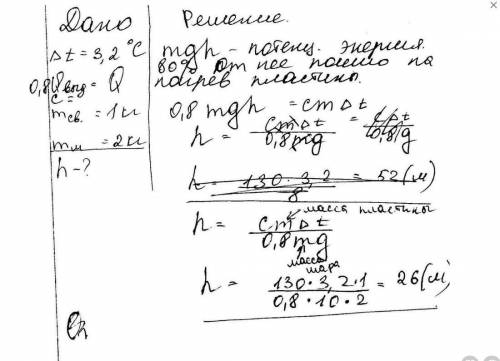 Дано
Δt = 3,2 °C
0,8 Qвыд = Q
c =
mсв. = 1 кг
mм = 2 кг
h - ?
Решение.
mgh - потенц. энергия.
80% от нее пошло на
нагрев пластины.
0,8 mgh = cmΔt
h = cmΔt / 0,8mg = cΔt / 0,8g
h = 130 · 3,2 / 8 = 52 (м)
h = cmΔt / 0,8mg
масса пластины
масса шара
h = 130 · 3,2 · 1 / 0,8 · 10 · 2 = 26 (м)